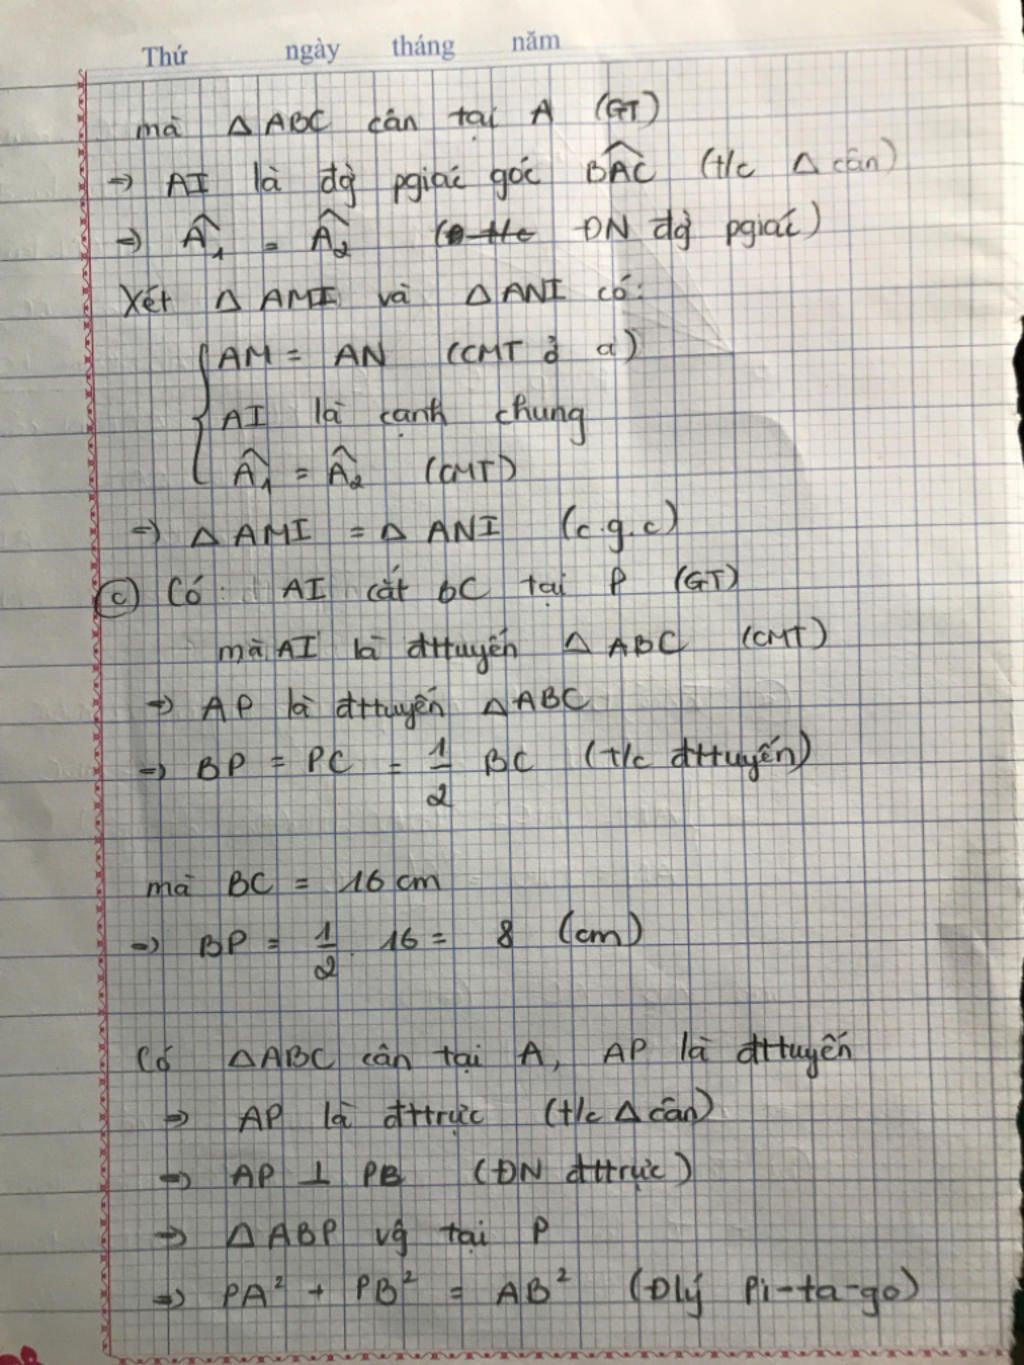 Thứ ngày tháng năm
mà △ABC cân tại A (GT)
=> AI là đg pgiác góc BAC (t/c △ cân)
=> Â₁ = Â₂ (ĐN đg pgiác)
Xét △AMI và △ANI có:
AM = AN (CMT ở a)
AI là cạnh chung
Â₁ = Â₂ (CMT)
=> △AMI = △ANI (c.g.c)
c) Có: AI cắt BC tại P (GT)
mà AI là đttuyến △ABC (CMT)
=> AP là đttuyến △ABC
=> BP = PC = 1/2 BC (t/c đttuyến)
mà BC = 16 cm
=> BP = 1/2 . 16 = 8 (cm)
Có △ABC cân tại A, AP là đttuyến
=> AP là đttrực (t/c △ cân)
=> AP ⊥ PB (ĐN đttrực)
=> △ABP vg tại P
=> PA² + PB² = AB² (Đlý Pi-ta-go)